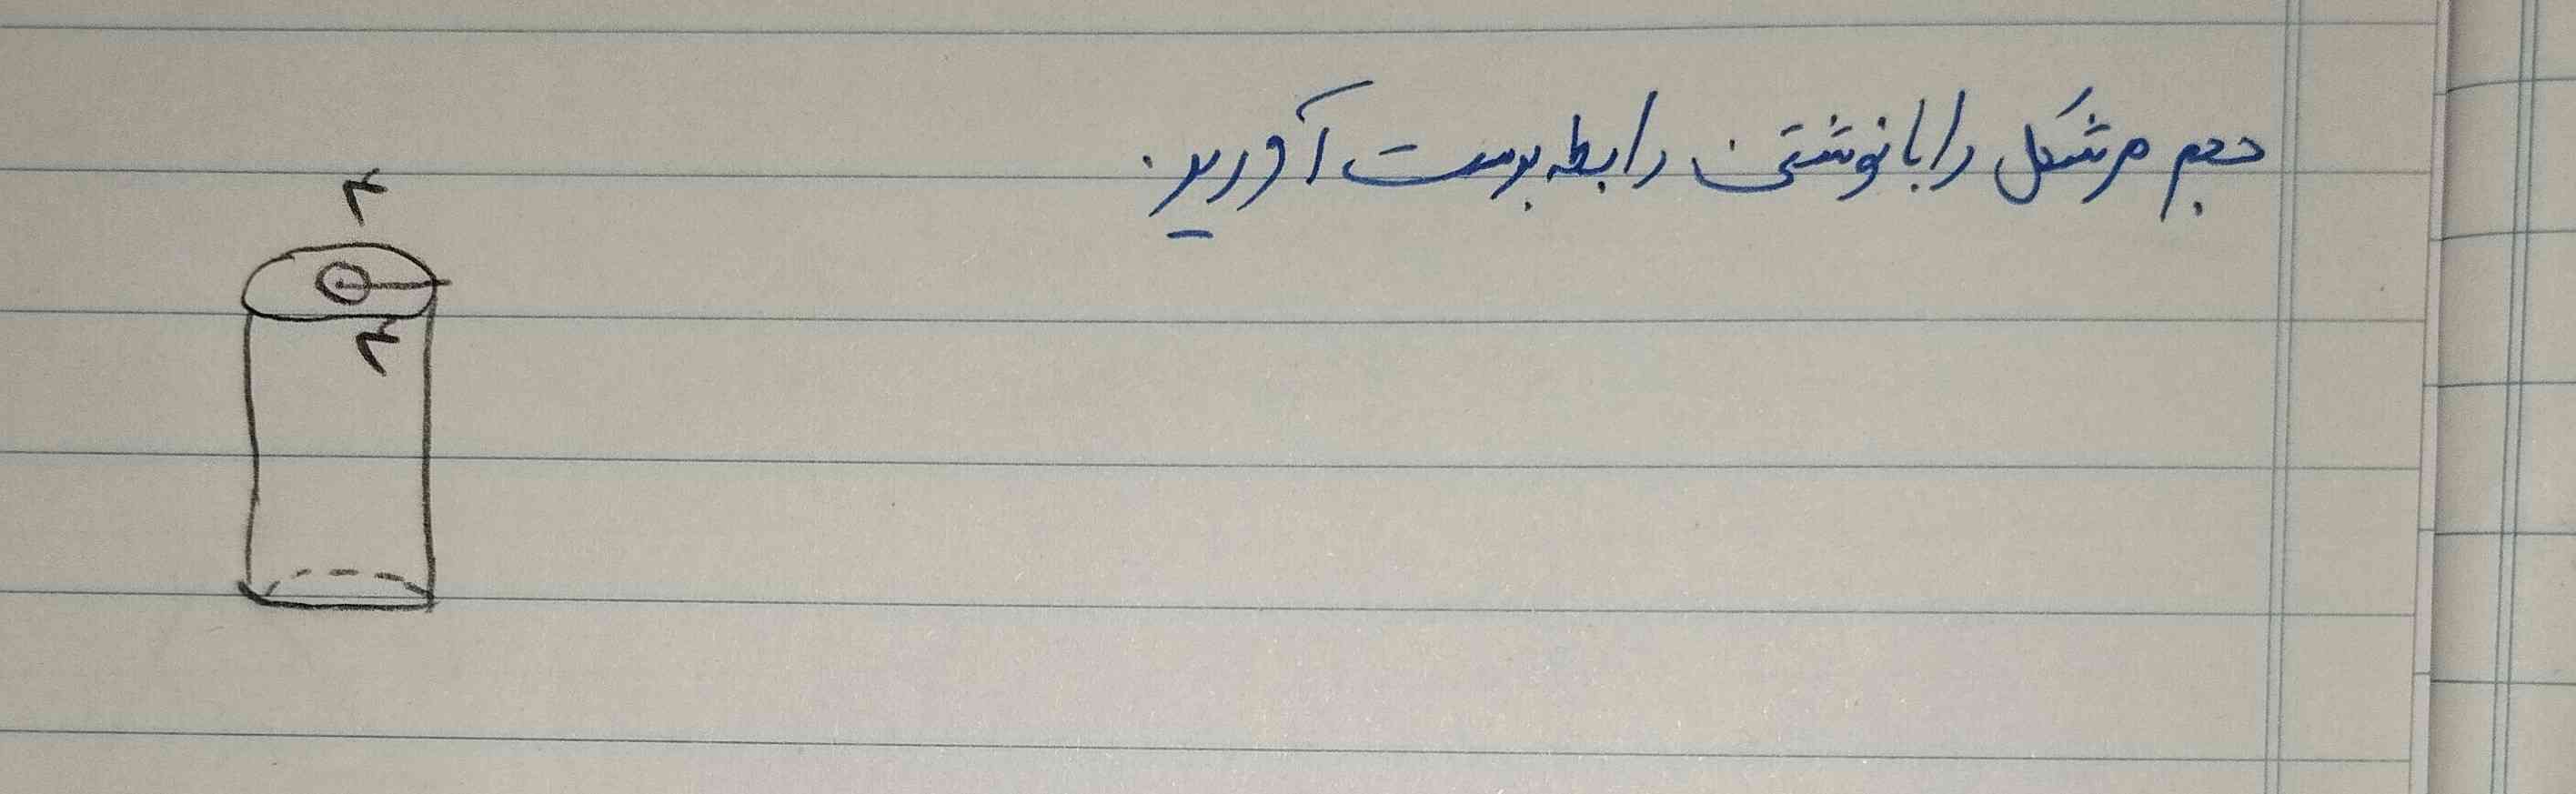 حجم هر شکل را با نوشتن رابطه بدست آورید.
۲
۳